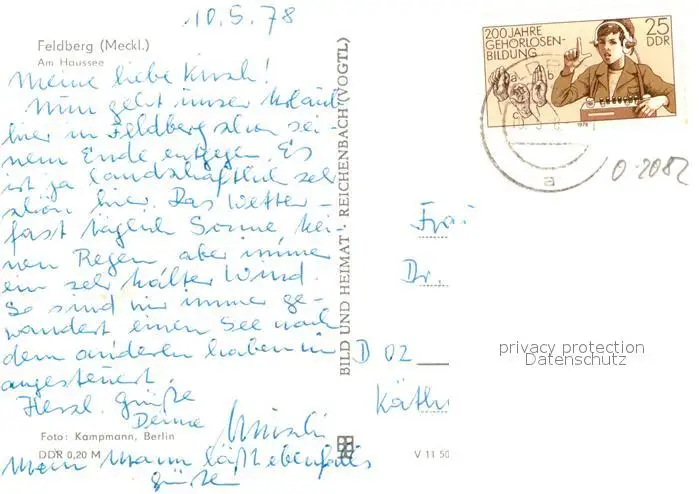 10.5.78
Feldberg (Meckl.)
Am Haussee
Meine liebe
Nun geht unser Urlaub
hier in Feldberg schon sei-
nem Ende entgegen. Es
ist ja landschaftlich sehr
schön hier. Das Wetter -
fast täglich Sonne kei-
nen Regen aber immer
ein sehr kalter Wind.
So sind wir immer ge-
wandert einen See nach
dem anderen haben wir
angesteuert.
Herzl. Grüße
Deine
Mein Mann läßt ebenfalls
grüßen
Foto: Kampmann, Berlin
DDR 0,20 M
BILD UND HEIMAT · REICHENBACH (VOGTL)
V 11 50
200 JAHRE
GEHÖRLOSEN-
BILDUNG
25
DDR
a
b
c
1978
a
0-2082
Frau
Dr.
D 02
Käth
privacy protection
Datenschutz